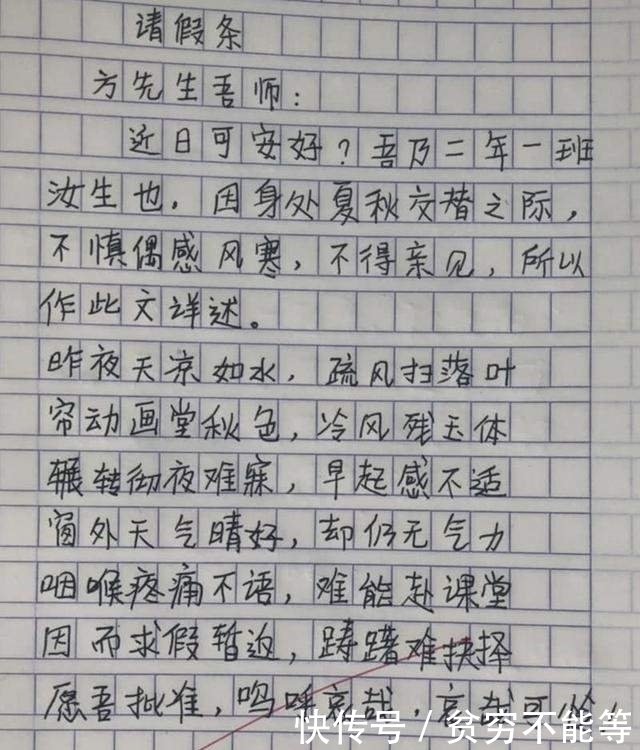 请假条
方先生吾师：
近日可安好？吾乃二年一班
汝生也，因身处夏秋交替之际，
不慎偶感风寒，不得亲见，所以
作此文详述。
昨夜天凉如水，疏风扫落叶
帘动画堂秋色，冷风残玉体
辗转彻夜难寐，早起感不适
窗外天气晴好，却仍无气力
咽喉疼痛不语，难能赴课堂
因而求假暂返，踌躇难抉择
愿吾批准，呜呼哀哉，哀哉可
快传号/贫穷不能等